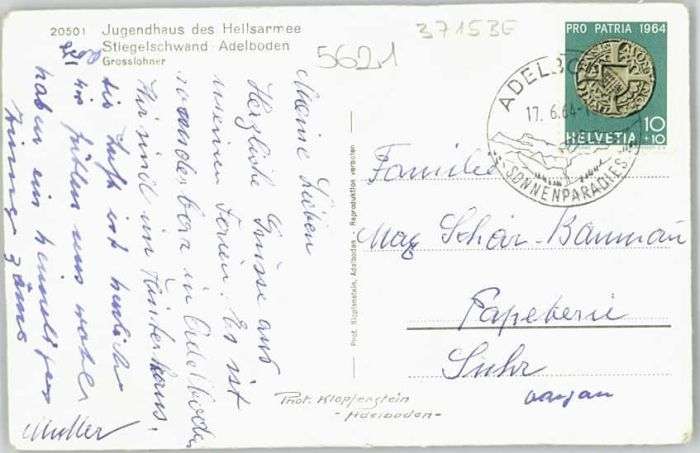 20501 Jugendhaus des Heilsarmee
Stiegelschwand Adelboden
Grosslohner
5621
3715BE
PRO PATRIA 1964
HELVETIA 10
+10
ADELBO
17. 6. 64-1
SONNENPARADIES
Meine Lieben
Herzliche Grüsse aus
unseren Ferien. Es ist
wunderbar in Adelboden
Wir sind im Hinterhaus.
die Luft ist herrlich
wir fühlen uns wohl
haben ein heimeliges
Zimmer
Müller
Prot. Klopfenstein, Adelboden - Reproduktion verboten
Familie
Max Schär-Baumann
Papeterie
Suhr
Aargau
Phot. Klopfenstein
- Adelboden -